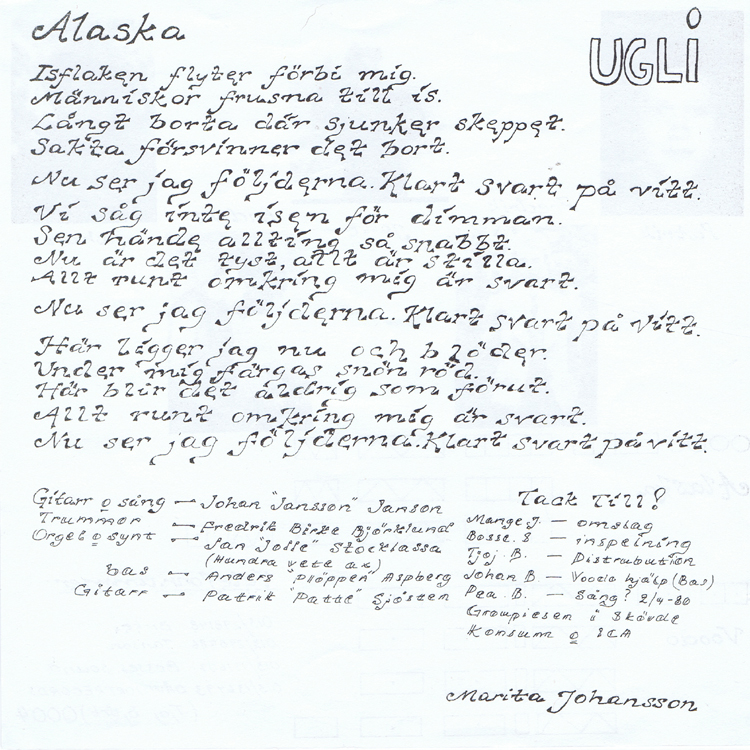 Alaska
UGLI
Isflaken flyter förbi mig.
Människor frusna till is.
Långt borta där sjunker skeppet.
Sakta försvinner det bort.
Nu ser jag följderna. Klart svart på vitt.
Vi såg inte isen för dimman.
Sen hände allting så snabbt.
Nu är det tyst, allt är stilla.
Allt runt omkring mig är svart.
Nu ser jag följderna. Klart svart på vitt.
Här ligger jag nu och blöder.
Under mig färgas snön röd.
Här blir det aldrig som förut.
Allt runt omkring mig är svart.
Nu ser jag följderna. Klart svart på vitt.
Gitarr o sång — Johan "Jansson" Janson
Trummor — Fredrik Birke Björklund
Orgel o synt — Jan "Jolle" Stocklassa
(Hundra vete ax)
bas — Anders "Ploppen" Aspberg
Gitarr — Patrik "Patte" Sjösten
Tack Till!
Mange J. — omslag
Bosse. S — inspelning
Tjoj B. — Distrubution
Johan B — Voodo hjälp (Bas)
Pea. B. — Sång? 2/4-80
Groupiesen i Skövde
Konsum o ICA
Marita Johansson